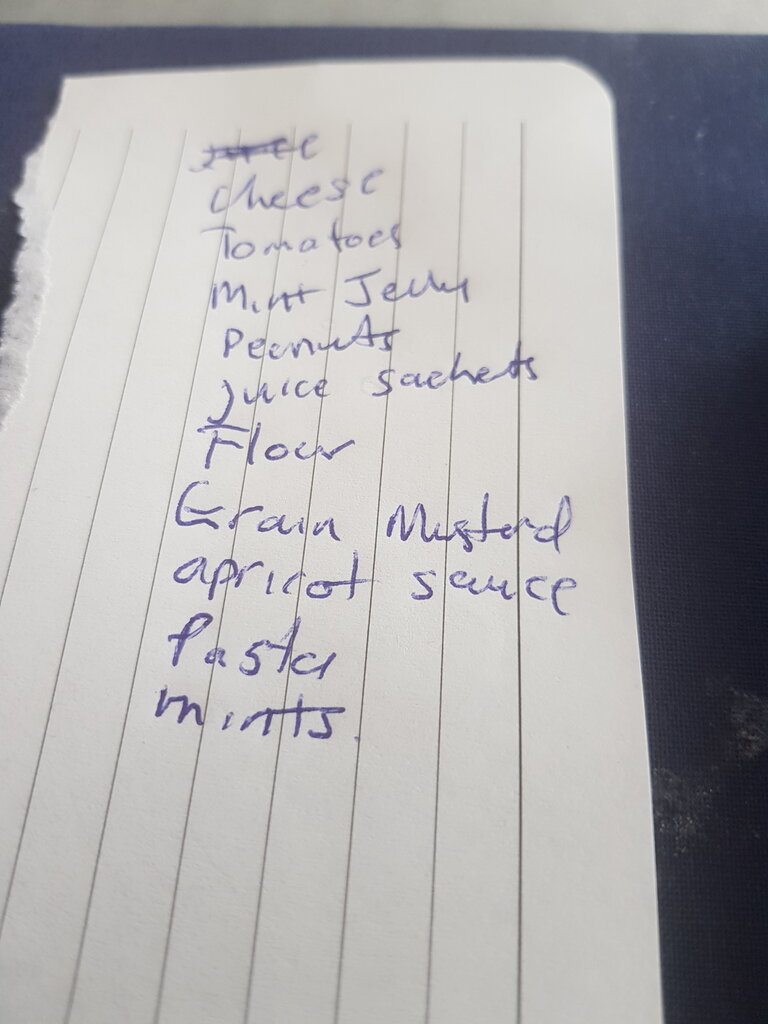 cheese
Tomatoes
Mint Jelly
Peanuts
juice sachets
Flour
Grain Mustard
apricot sauce
Pasta
mints.